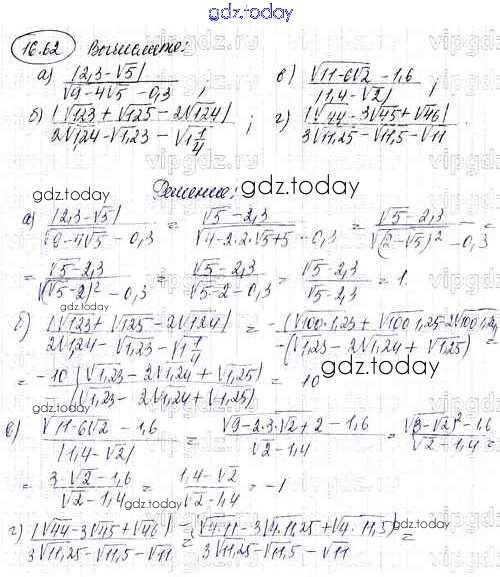 gdz.today
16.62 Вычислите:
а) |2,3-√5| / (√(9-4√5) - 0,3) ; в) (√(11-6√2) - 1,6) / |1,4-√2| ;
б) |√123 + √125 - 2√124| / (2√1,24 - √1,23 - √(1 1/4)) ; г) |√44 - 3√45 + √46| / (3√11,25 - √11,5 - √11) .
Решение:
gdz.today
а) |2,3-√5| / (√(9-4√5) - 0,3) = (√5-2,3) / (√(4-2·2·√5+5) - 0,3) = (√5-2,3) / (√((2-√5)²) - 0,3) =
= (√5-2,3) / (√((√5-2)²) - 0,3) = (√5-2,3) / (√5-2-0,3) = (√5-2,3) / (√5-2,3) = 1.
б) |√123 + √125 - 2√124| / (2√1,24 - √1,23 - √(1 1/4)) = -(√(100·1,23) + √(100·1,25) - 2√(100·1,24)) / -(√1,23 - 2√1,24 + √1,25) =
= -10 (√1,23 - 2√1,24 + √1,25) / (√1,23 - 2√1,24 + √1,25) = 10
в) (√(11-6√2) - 1,6) / |1,4-√2| = (√(9-2·3·√2+2) - 1,6) / (√2-1,4) = (√((3-√2)²) - 1,6) / (√2-1,4) =
= (3-√2-1,6) / (√2-1,4) = (1,4-√2) / (√2-1,4) = -1
г) |√44 - 3√45 + √46| / (3√11,25 - √11,5 - √11) = |√(4·11) - 3√(4·11,25) + √(4·11,5)| / (3√11,25 - √11,5 - √11) =
gdz.today